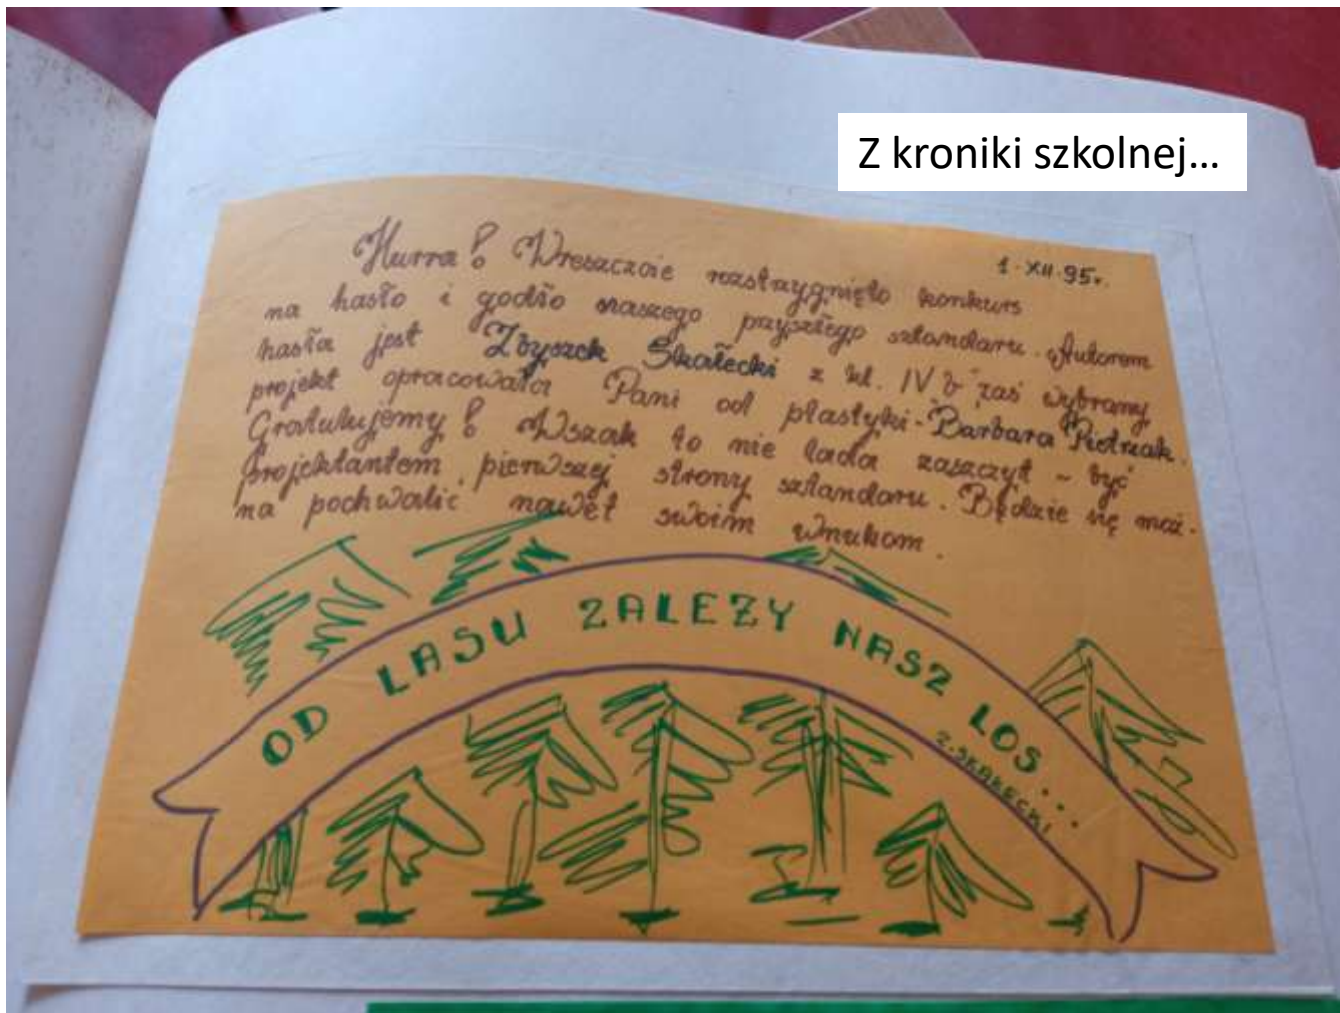 Z kroniki szkolnej...
1. XII. 95r.
Hurra! Wreszcie rozstrzygnięto konkurs
na hasło i godło naszego przyszłego sztandaru. Autorem
hasła jest Zbyszek Skałecki z kl. IV b zaś wybrany
projekt opracowała Pani od plastyki - Barbara Pietrzak.
Gratulujemy! Wszak to nie lada zaszczyt - być
projektantem pierwszej strony sztandaru. Będzie się moż-
na pochwalić nawet swoim wnukom.
OD LASU ZALEŻY NASZ LOS...
Z. SKAŁECKI